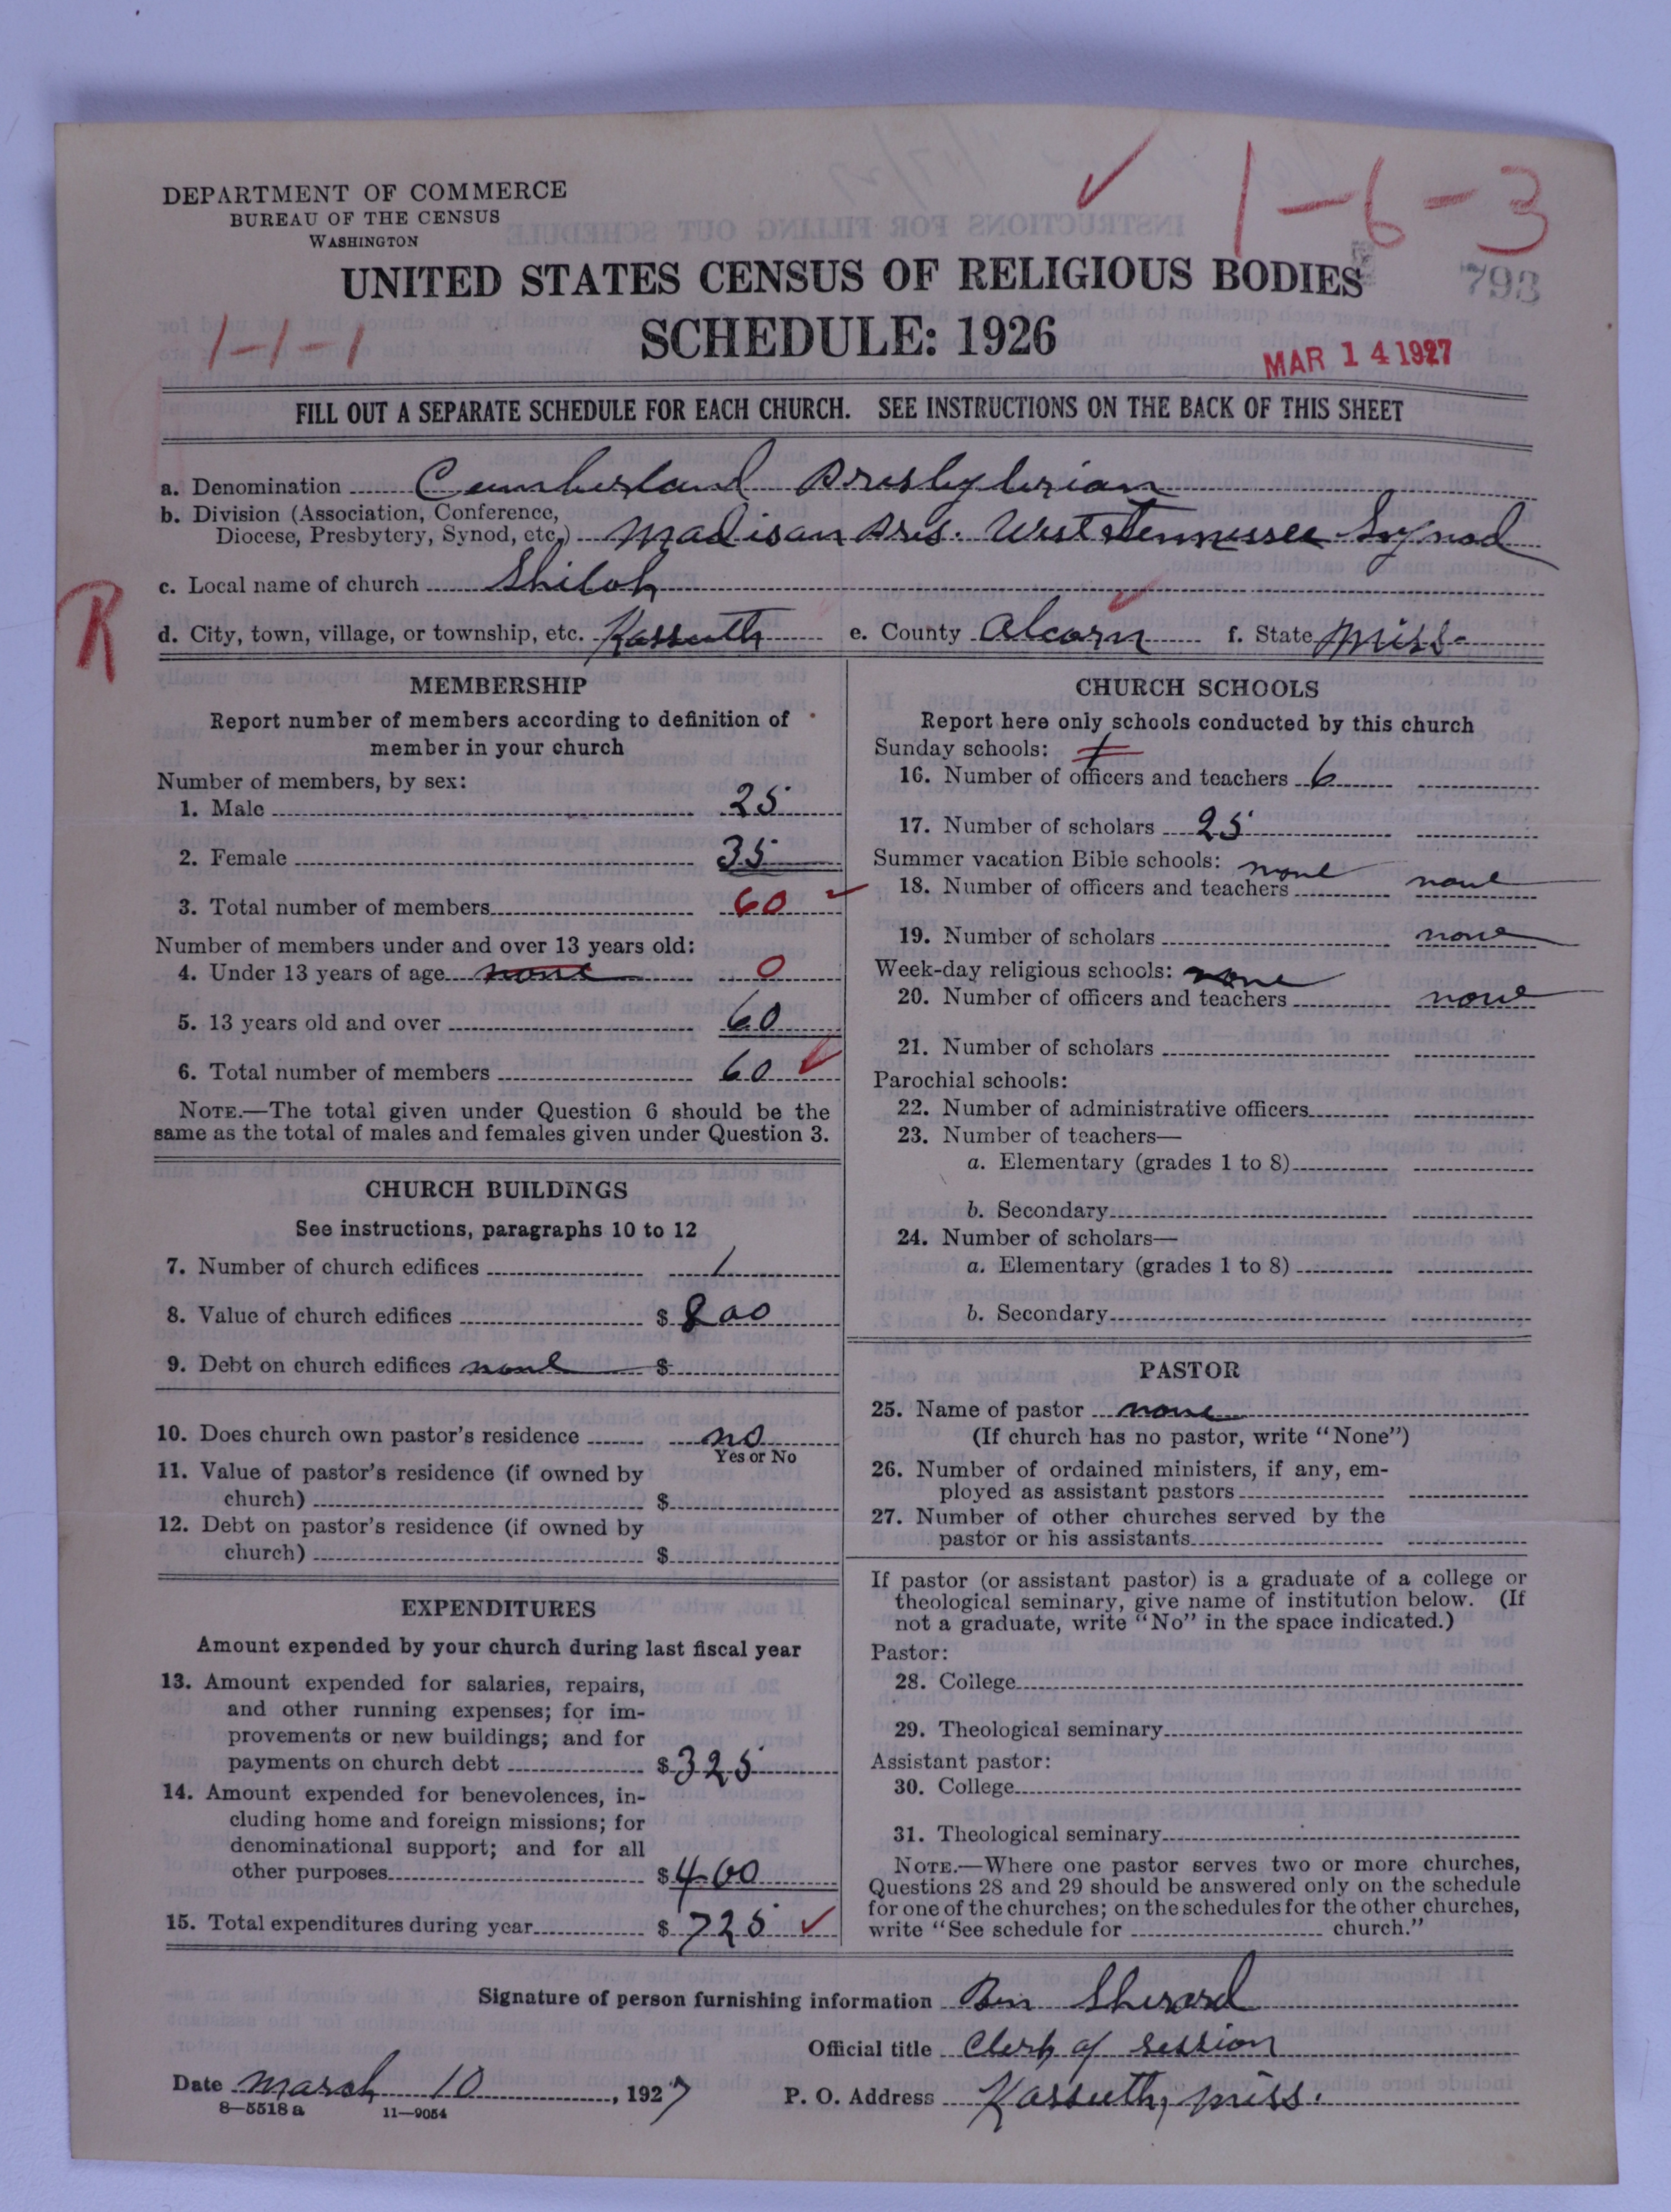 DEPARTMENT OF COMMERCE
BUREAU OF THE CENSUS
WASHINGTON
1-6-3
793
UNITED STATES CENSUS OF RELIGIOUS BODIES
SCHEDULE: 1926
1-1-1
MAR 14 1927
FILL OUT A SEPARATE SCHEDULE FOR EACH CHURCH. SEE INSTRUCTIONS ON THE BACK OF THIS SHEET
a. Denomination Cumberland Presbyterian
b. Division (Association, Conference,
Diocese, Presbytery, Synod, etc.) Madison Pres. West Tennessee Synod
c. Local name of church Shiloh
R
d. City, town, village, or township, etc. Kossuth e. County Alcorn f. State Miss.
MEMBERSHIP
Report number of members according to definition of
member in your church
Number of members, by sex:
1. Male 25
2. Female 35
3. Total number of members 60
Number of members under and over 13 years old:
4. Under 13 years of age none 0
5. 13 years old and over 60
6. Total number of members 60
NOTE.—The total given under Question 6 should be the
same as the total of males and females given under Question 3.
CHURCH BUILDINGS
See instructions, paragraphs 10 to 12
7. Number of church edifices 1
8. Value of church edifices $ 800
9. Debt on church edifices none $
10. Does church own pastor's residence no
Yes or No
11. Value of pastor's residence (if owned by
church) $
12. Debt on pastor's residence (if owned by
church) $
EXPENDITURES
Amount expended by your church during last fiscal year
13. Amount expended for salaries, repairs,
and other running expenses; for im-
provements or new buildings; and for
payments on church debt $ 325
14. Amount expended for benevolences, in-
cluding home and foreign missions; for
denominational support; and for all
other purposes $ 400
15. Total expenditures during year $ 725
CHURCH SCHOOLS
Report here only schools conducted by this church
Sunday schools:
16. Number of officers and teachers 6
17. Number of scholars 25
Summer vacation Bible schools: none
18. Number of officers and teachers none
19. Number of scholars none
Week-day religious schools: none
20. Number of officers and teachers none
21. Number of scholars
Parochial schools:
22. Number of administrative officers
23. Number of teachers—
a. Elementary (grades 1 to 8)
b. Secondary
24. Number of scholars—
a. Elementary (grades 1 to 8)
b. Secondary
PASTOR
25. Name of pastor none
(If church has no pastor, write "None")
26. Number of ordained ministers, if any, em-
ployed as assistant pastors
27. Number of other churches served by the
pastor or his assistants
If pastor (or assistant pastor) is a graduate of a college or
theological seminary, give name of institution below. (If
not a graduate, write "No" in the space indicated.)
Pastor:
28. College
29. Theological seminary
Assistant pastor:
30. College
31. Theological seminary
NOTE.—Where one pastor serves two or more churches,
Questions 28 and 29 should be answered only on the schedule
for one of the churches; on the schedules for the other churches,
write "See schedule for church."
Signature of person furnishing information Ben Sherard
Official title Clerk of session
Date March 10, 1927 P. O. Address Kossuth, Miss.
8—5518 a 11—9054